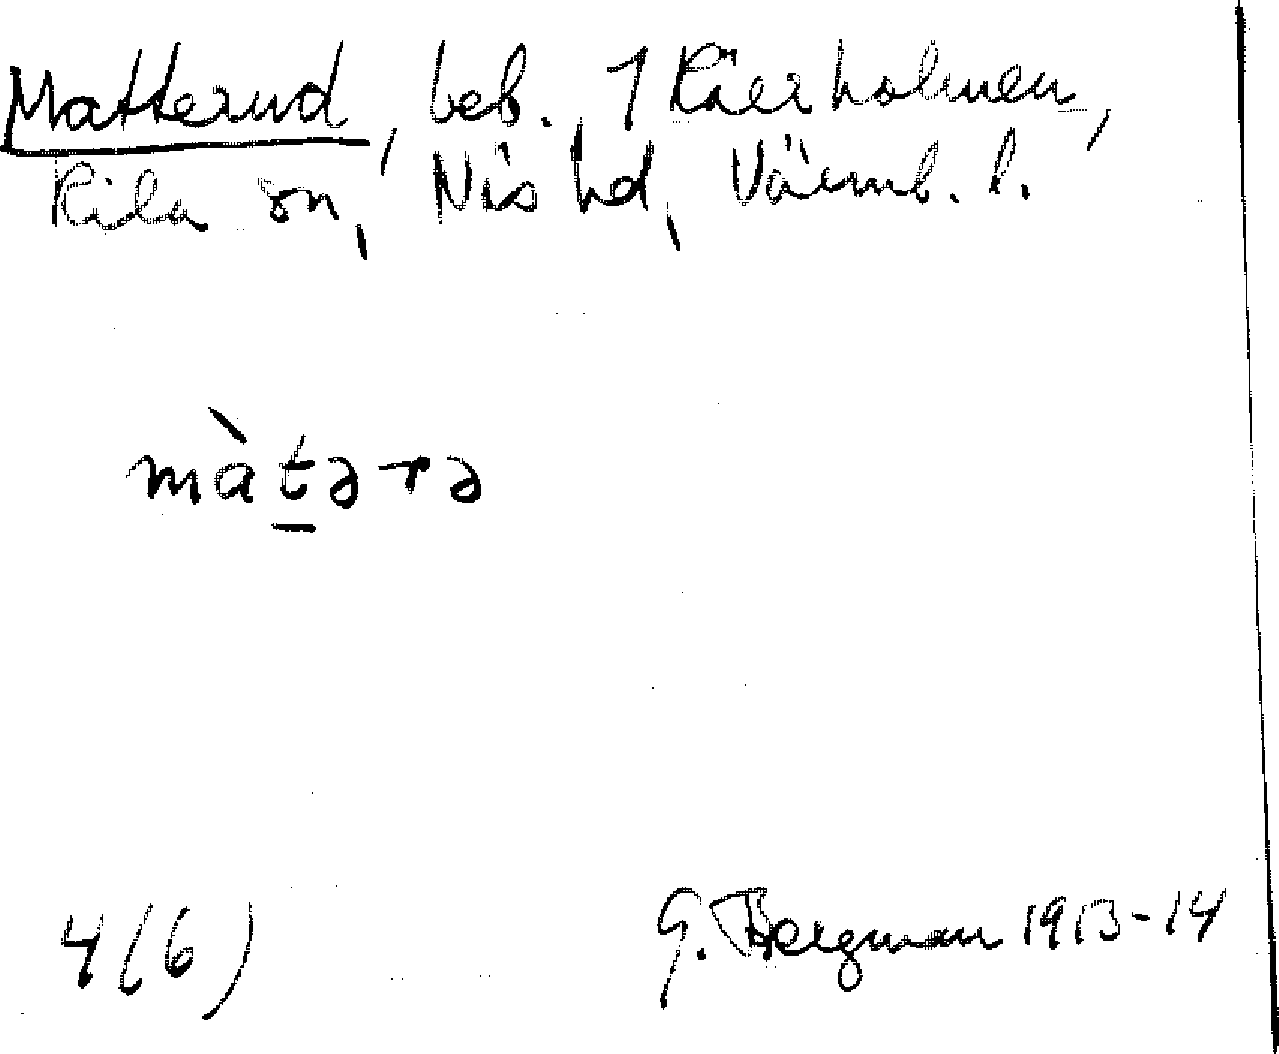 Matterud, beb. 1 Käerholmen,
Kila sn, Näs hd, Värml. l.
màt̲ərə
4(6)
G. Bergman 1913-14